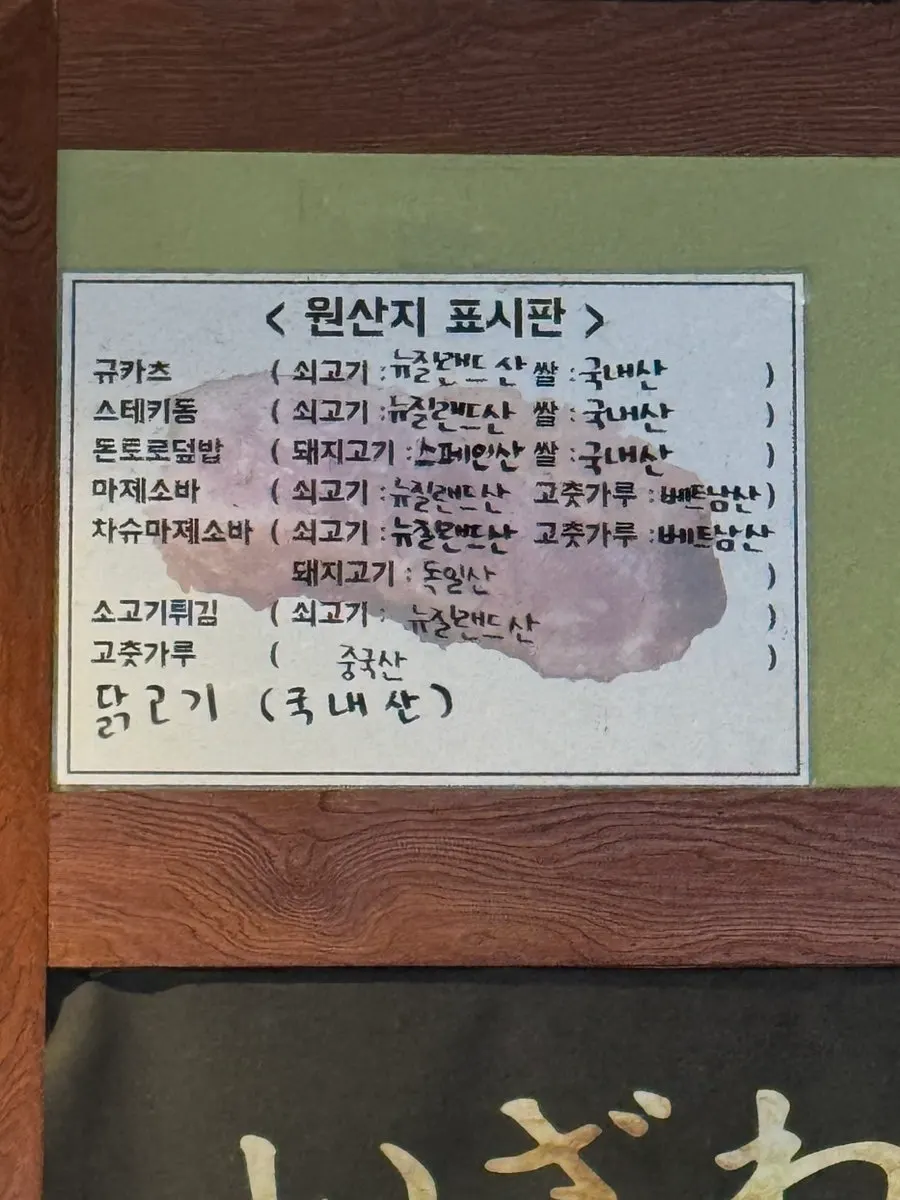 < 원산지 표시판 >
규카츠 ( 쇠고기 : 뉴질랜드산 쌀 : 국내산 )
스테키동 ( 쇠고기 : 뉴질랜드산 쌀 : 국내산 )
돈토로덮밥 ( 돼지고기 : 스페인산 쌀 : 국내산 )
마제소바 ( 쇠고기 : 뉴질랜드산 고춧가루 : 베트남산 )
차슈마제소바 ( 쇠고기 : 뉴질랜드산 고춧가루 : 베트남산
돼지고기 : 독일산 )
소고기튀김 ( 쇠고기 : 뉴질랜드산 )
고춧가루 ( 중국산 )
닭고기 (국내산)
いざわ